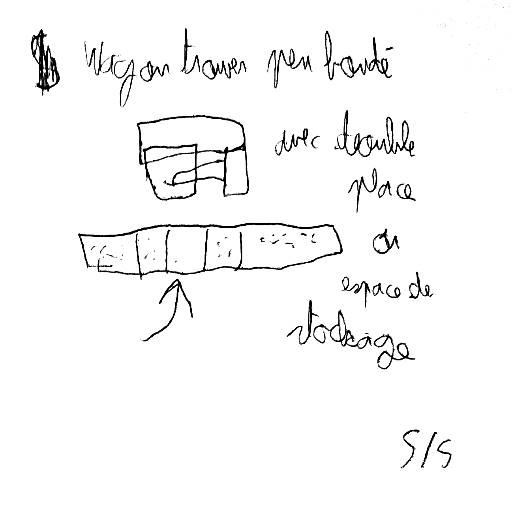 Wagon trouver peu bondé
avec double
place
ou
espace de
stockage
5/5